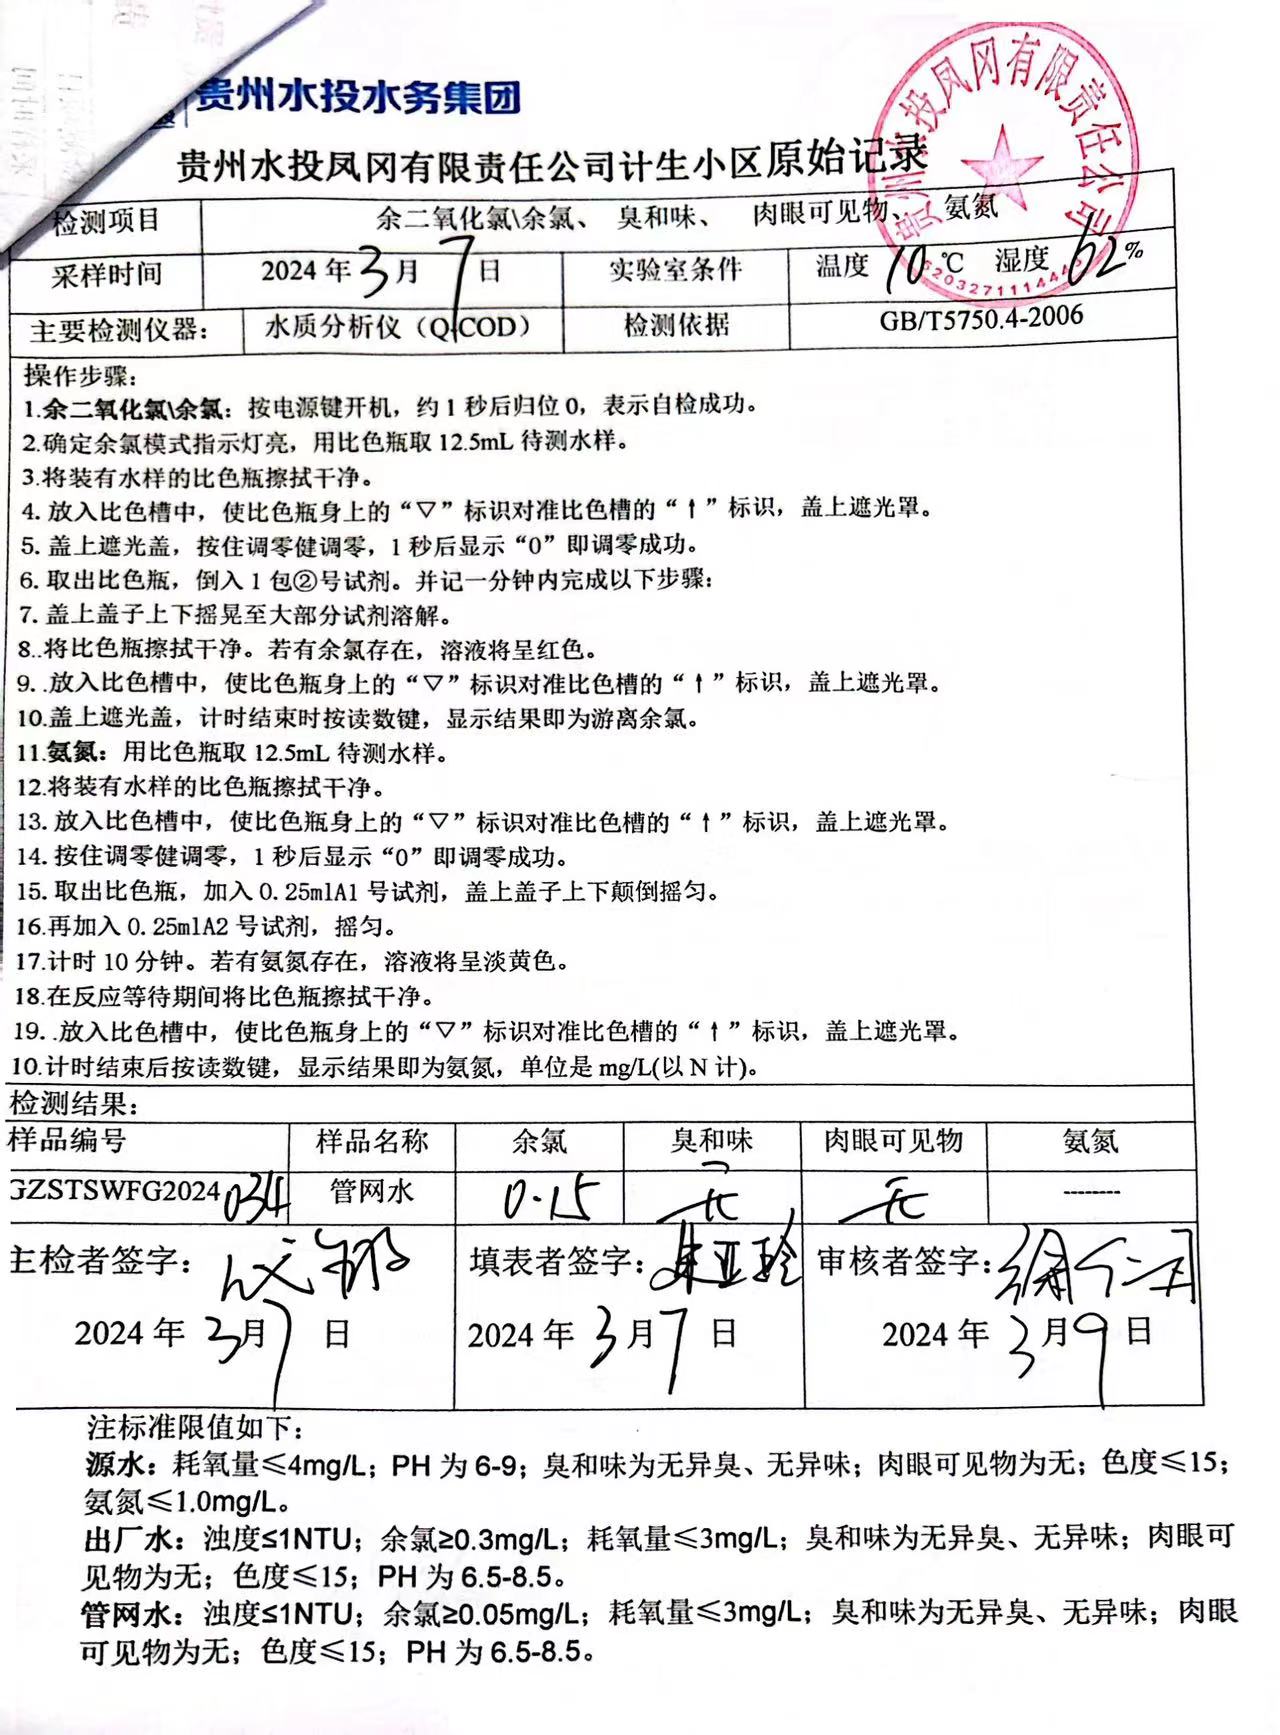 贵州水投水务集团
贵州水投凤冈有限责任公司计生小区原始记录
贵州水投凤冈有限责任公司
检测项目 余二氧化氯\余氯、 臭和味、 肉眼可见物、 氨氮
采样时间 2024年3月7日 实验室条件 温度 10℃ 湿度 62%
主要检测仪器： 水质分析仪（Q-COD） 检测依据 GB/T5750.4-2006
操作步骤：
1.余二氧化氯\余氯：按电源键开机，约1秒后归位0，表示自检成功。
2.确定余氯模式指示灯亮，用比色瓶取12.5mL待测水样。
3.将装有水样的比色瓶擦拭干净。
4. 放入比色槽中，使比色瓶身上的“▽”标识对准比色槽的“↑”标识，盖上遮光罩。
5. 盖上遮光盖，按住调零健调零，1秒后显示“0”即调零成功。
6. 取出比色瓶，倒入1包②号试剂。并记一分钟内完成以下步骤：
7. 盖上盖子上下摇晃至大部分试剂溶解。
8..将比色瓶擦拭干净。若有余氯存在，溶液将呈红色。
9. .放入比色槽中，使比色瓶身上的“▽”标识对准比色槽的“↑”标识，盖上遮光罩。
10.盖上遮光盖，计时结束时按读数键，显示结果即为游离余氯。
11.氨氮：用比色瓶取12.5mL待测水样。
12.将装有水样的比色瓶擦拭干净。
13. 放入比色槽中，使比色瓶身上的“▽”标识对准比色槽的“↑”标识，盖上遮光罩。
14. 按住调零健调零，1秒后显示“0”即调零成功。
15. 取出比色瓶，加入0.25mlA1号试剂，盖上盖子上下颠倒摇匀。
16.再加入0.25mlA2号试剂，摇匀。
17.计时10分钟。若有氨氮存在，溶液将呈淡黄色。
18.在反应等待期间将比色瓶擦拭干净。
19. .放入比色槽中，使比色瓶身上的“▽”标识对准比色槽的“↑”标识，盖上遮光罩。
10.计时结束后按读数键，显示结果即为氨氮，单位是mg/L(以N计)。
检测结果：
样品编号 样品名称 余氯 臭和味 肉眼可见物 氨氮
GZSTSWFG2024034 管网水 0.15 无 无 --------
主检者签字： 填表者签字：朱亚玲 审核者签字：
2024年3月7日 2024年3月7日 2024年3月9日
注标准限值如下：
源水：耗氧量≤4mg/L；PH为6-9；臭和味为无异臭、无异味；肉眼可见物为无；色度≤15；
氨氮≤1.0mg/L。
出厂水：浊度≤1NTU；余氯≥0.3mg/L；耗氧量≤3mg/L；臭和味为无异臭、无异味；肉眼可
见物为无；色度≤15；PH为6.5-8.5。
管网水：浊度≤1NTU；余氯≥0.05mg/L；耗氧量≤3mg/L；臭和味为无异臭、无异味；肉眼
可见物为无；色度≤15；PH为6.5-8.5。